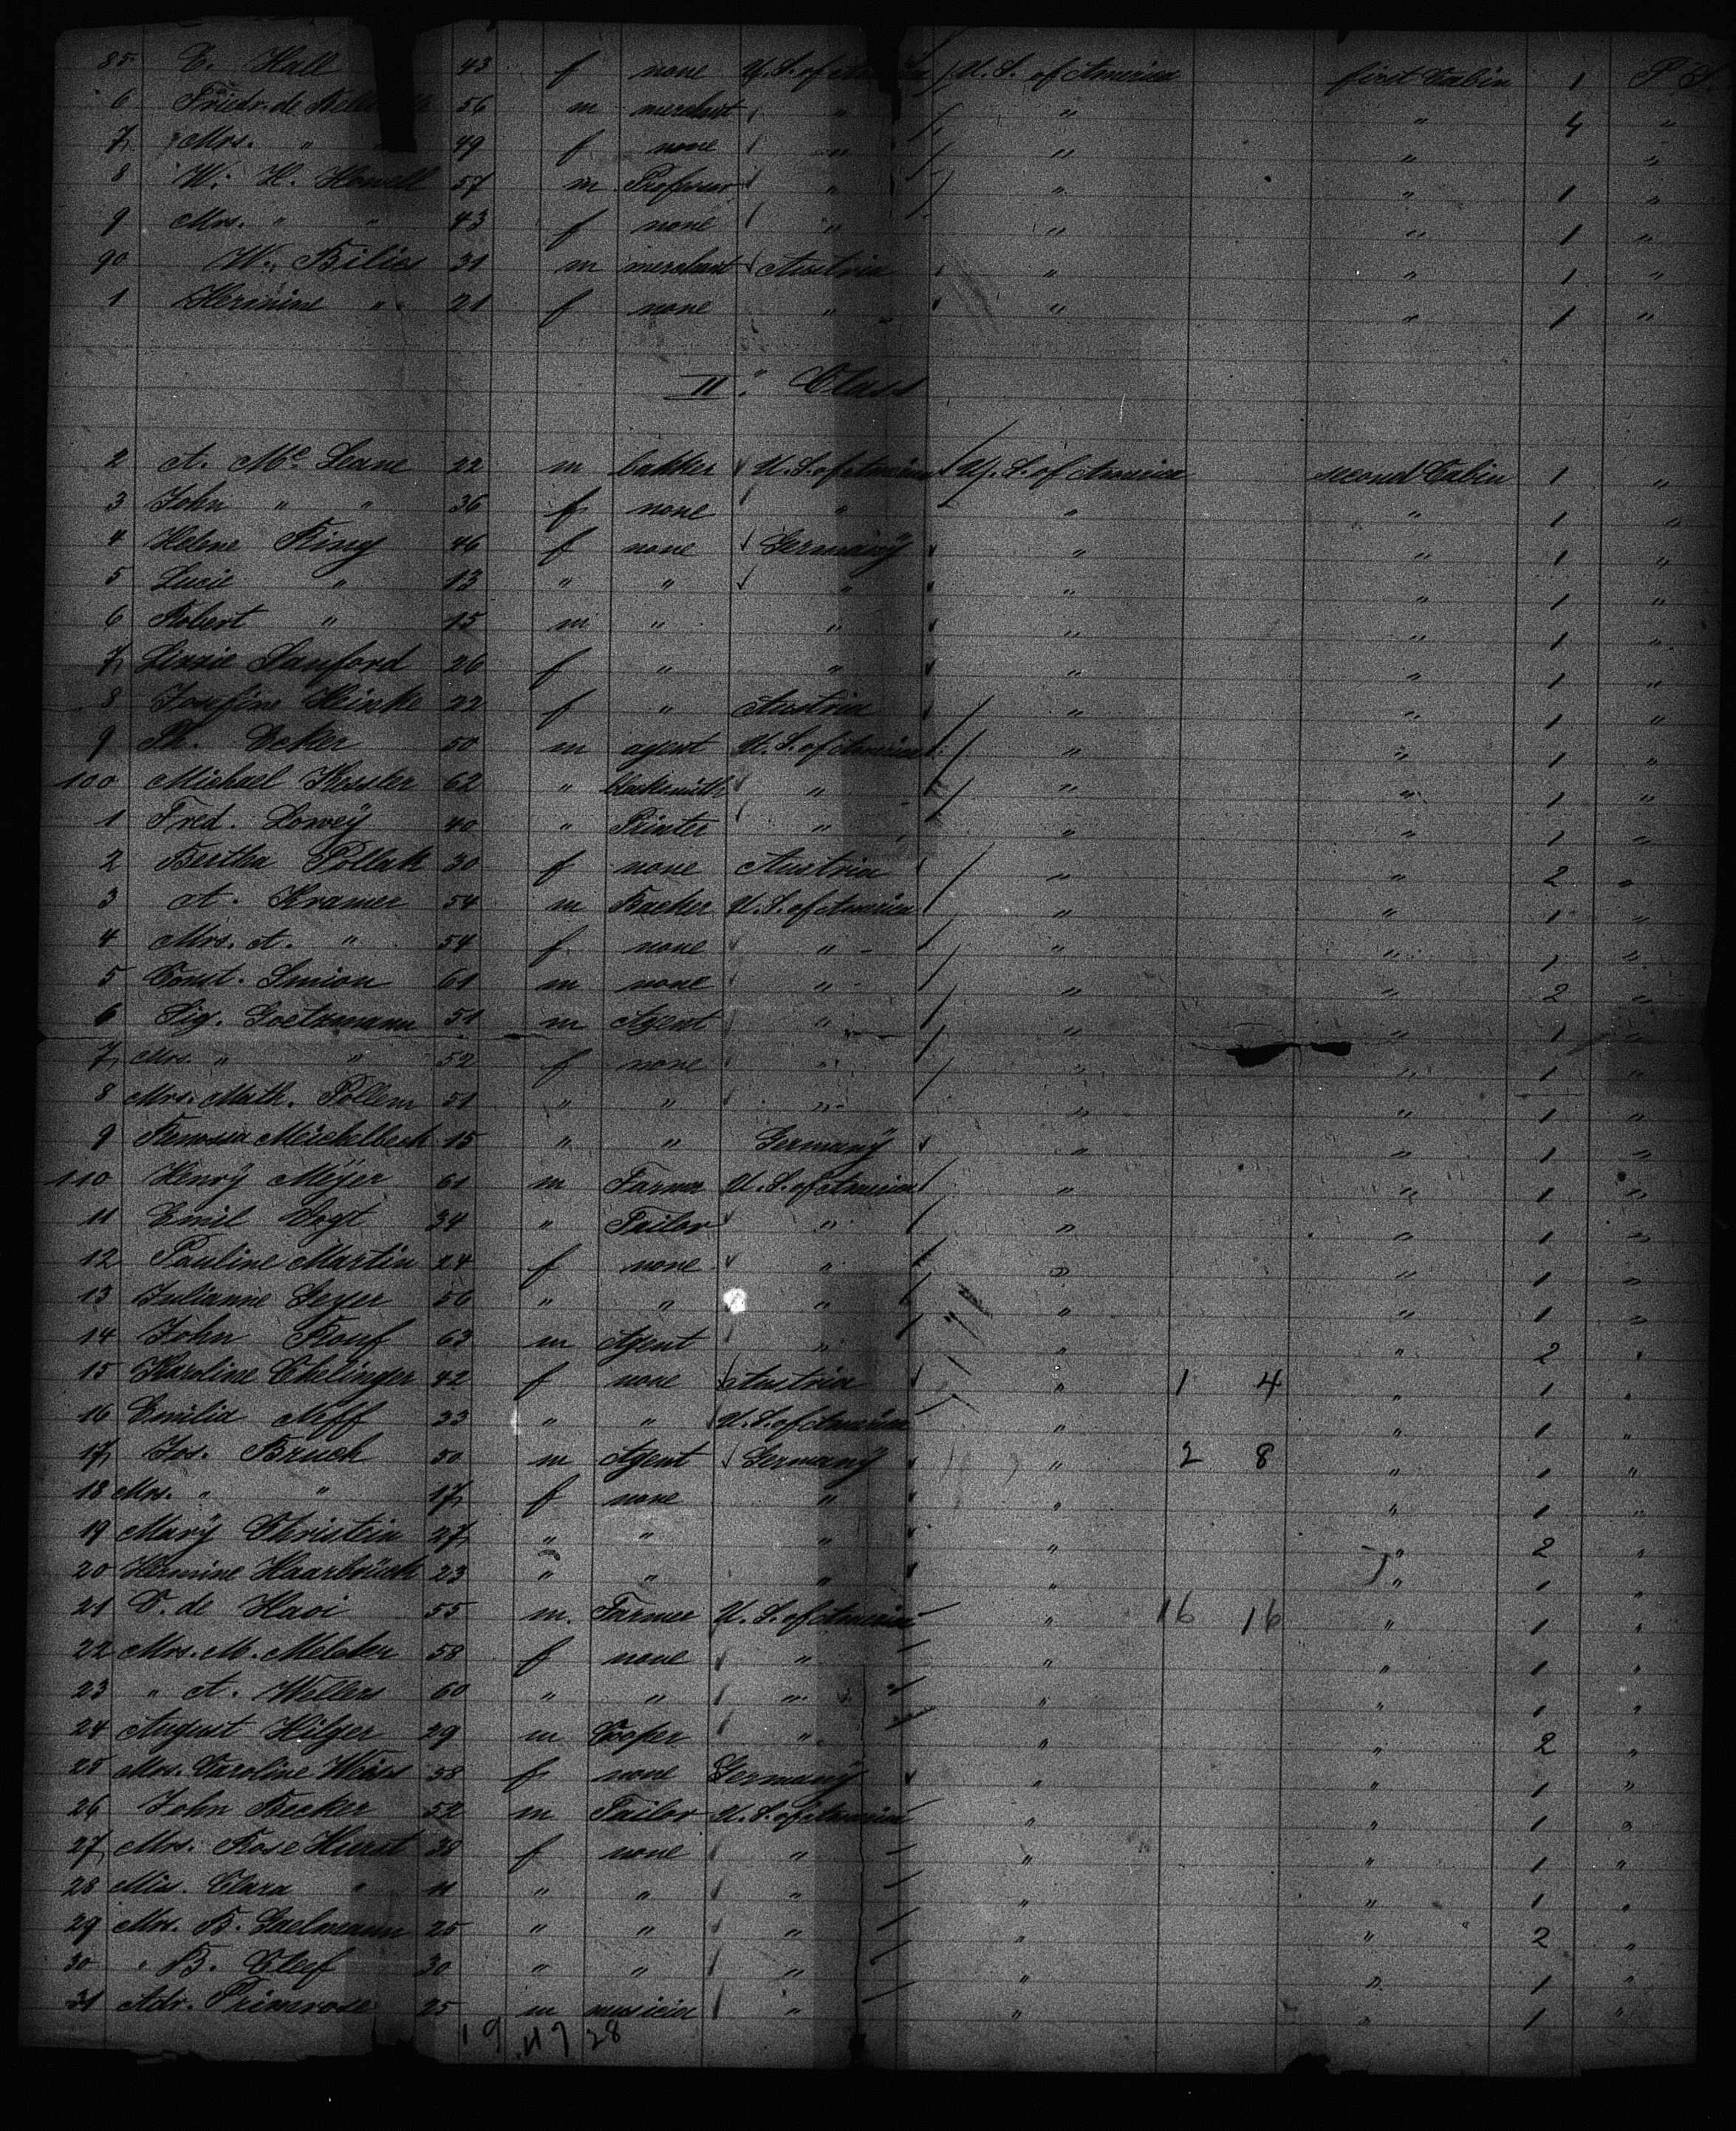 85 E. Hall 43 f none U.S. of America U.S. of America first Cabin 1 P. S.
6 Friedr. de 56 m merchant " " " 4 "
7 Mrs. " " 49 f none " " " "
8 W. H. Howell 57 m Professor " " " 1 "
9 Mrs. " " 43 f none " " " 1 "
90 W. Bilics 31 m merchant Austria " " 1 "
1 Hermine " 21 f none " " " 1 "
II. Class
2 A. Mc. Leane 22 m bakker U.S. of America U.S. of America second Cabin 1 "
3 John " " 36 f none " " " 1 "
4 Helene King 46 f none Germany " " 1 "
5 Lucie " 13 " " " " " 1 "
6 Robert " 15 m " " " " 1 "
7 Lizzie Sanford 26 f " " " " 1 "
8 Josefine Heinke 22 f " Austria " " 1 "
9 Ph. Deker 50 m agent U.S. of America " " 1 "
100 Michael Kessler 62 " blacksmith " " " 1 "
1 Fred. Lowey 40 " Printer " " " 1 "
2 Bertha Pollak 30 f none Austria " " 2 "
3 A. Kramer 54 m Backer U.S. of America " " 1 "
4 Mrs. A. " 54 f none " " " 1 "
5 Const. Simion 61 m none " " " 2 "
6 Sig. Goetzmann 51 m Agent " " " 1 "
7 Mrs. " " 52 f none " " " 1 "
8 Mrs. Math. Pollem 51 " " " " " 1 "
9 Meichelbeck 15 " " Germany " " 1 "
110 Henry Meyer 61 m Farmer U.S. of America " " 1 "
11 Emil Vogt 34 " Tailor " " " 1 "
12 Pauline Martin 24 f none " " " 1 "
13 Julianne Geyer 50 " " " " " 1 "
14 John Rouf 63 m Agent " " " 2 "
15 Karoline Ehelinger 42 f none Austria " 1 4 " 1 "
16 Emilia Neff 33 " " U.S. of America " " 1 "
17 Jos. Bruck 50 m Agent Germany " 2 8 " 1 "
18 Mrs. " " 17 f none " " " 1 "
19 Mary Christein 27 " " " " " 2 "
20 Hermine Haarbrück 23 " " " " " 1 "
21 V. de Haoi 55 m. Farmer U.S. of America " 16 16 " 1 "
22 Mrs. M. Melcher 58 f none " " " 1 "
23 " A. Wellers 60 " " " " " 1 "
24 August Hilger 29 m Cooper " " " 2 "
25 Mrs. Caroline Weiss 58 f none Germany " " 1 "
26 John Becker 52 m Tailor U.S. of America " " 1 "
27 Mrs. Rose Hurst 38 f none " " " 1 "
28 Miss. Clara " 11 " " " " " 1 "
29 Mrs. B. 25 " " " " " 2 "
30 " B. Cleef 30 " " " " " 1 "
31 Adr. Primrose 25 m musician " " " 1 "
19 47 28